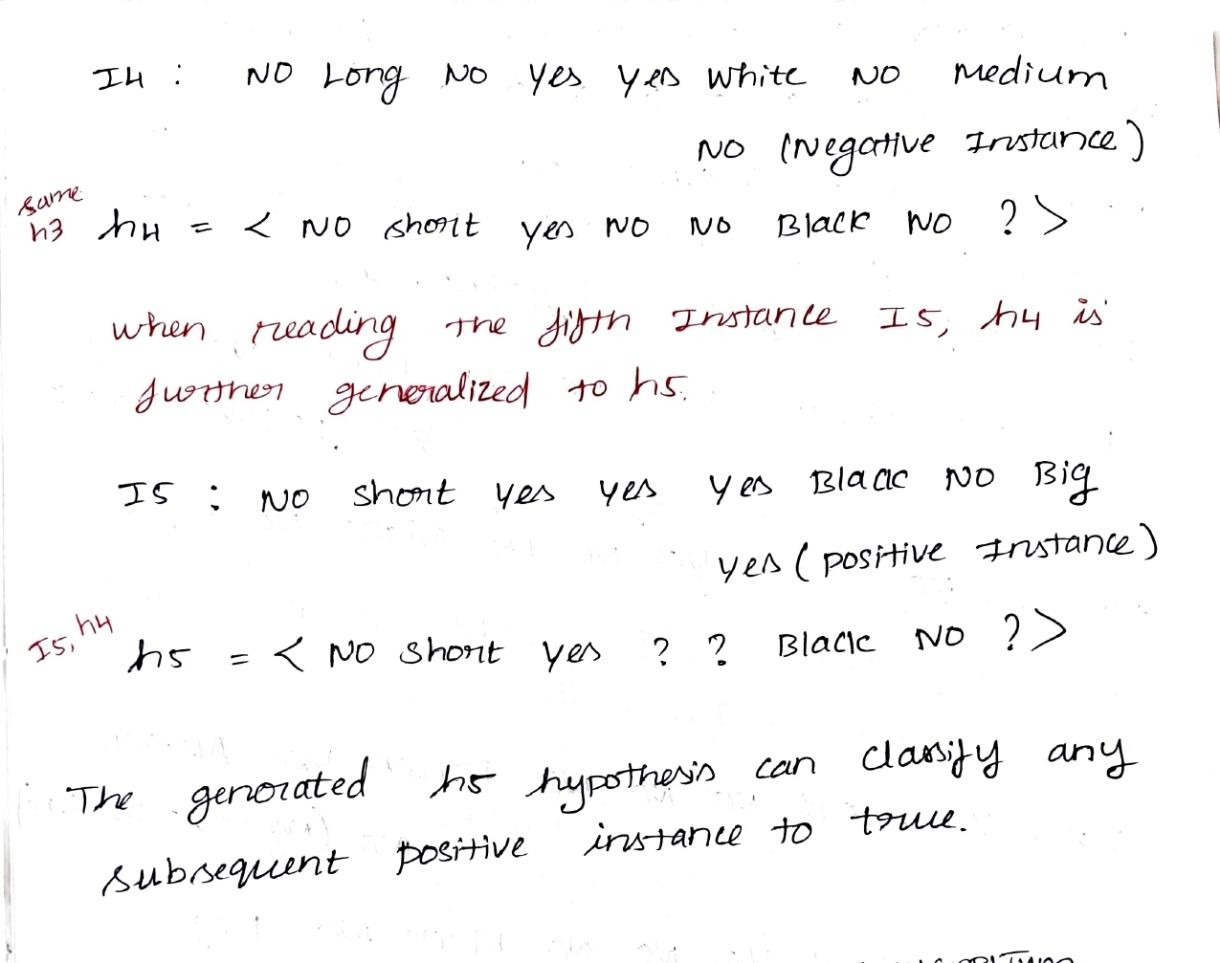 I4 : NO Long NO yes yes white NO Medium
NO (Negative Instance)
same
h3 h4 = < NO short yes NO NO Black NO ? >
when reading the fifth Instance I5, h4 is
further generalized to h5.
I5 : NO short yes yes yes Black NO Big
yes (positive Instance)
I5, h4
h5 = < NO short yes ? ? Black NO ? >
The generated h5 hypothesis can classify any
subsequent positive instance to true.